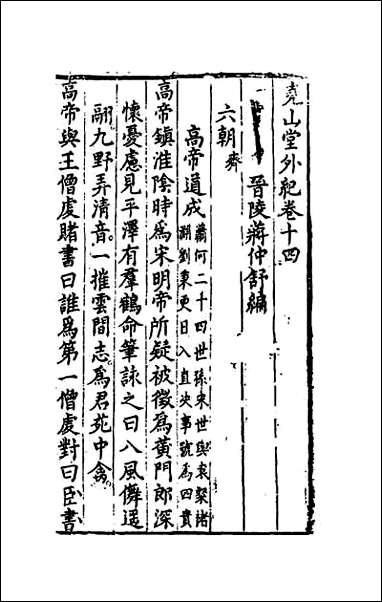 堯山堂外紀卷十四
晉陵蔣仲舒編
六朝 齊
高帝道成 蕭何二十四世孫宋世與袁粲褚
淵劉秉更日入直决事號爲四貴
高帝鎮淮陰時爲宋明帝所疑被徵爲黄門郎深
懷憂慮見平澤有羣鶴命筆詠之曰八風儛遥
翮九野弄清音一摧雲間志爲君苑中禽
高帝與王僧虔賭書曰誰爲第一僧虔對曰臣書